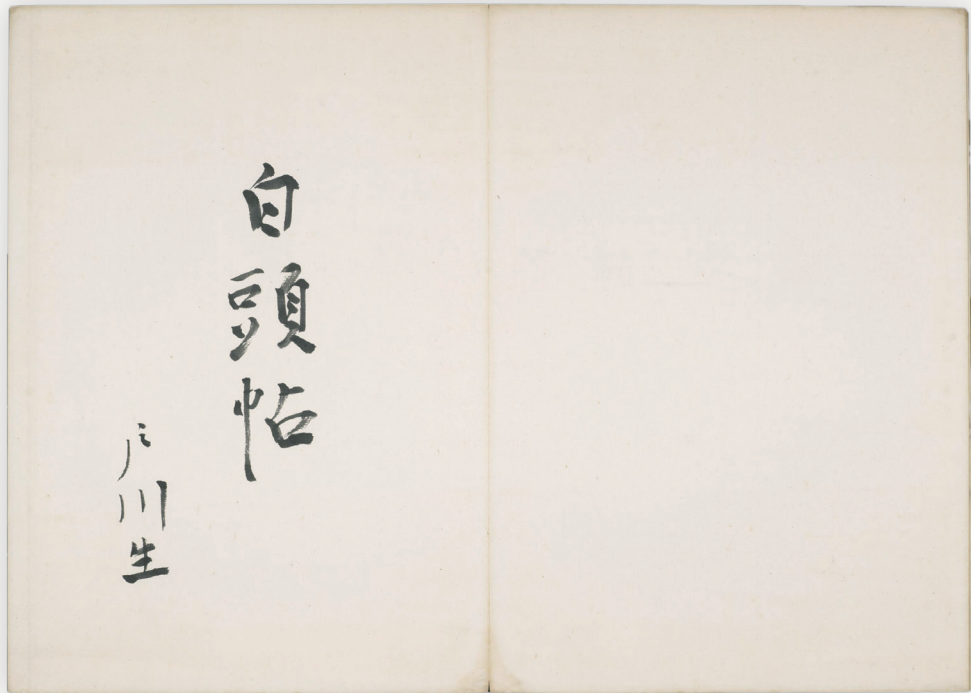 白頭帖
戸川生